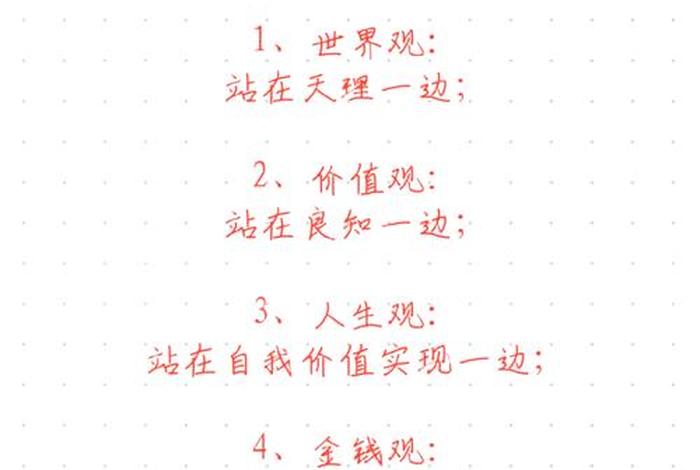 1、世界观：
站在天理一边；
2、价值观：
站在良知一边；
3、人生观：
站在自我价值实现一边；
4、金钱观：